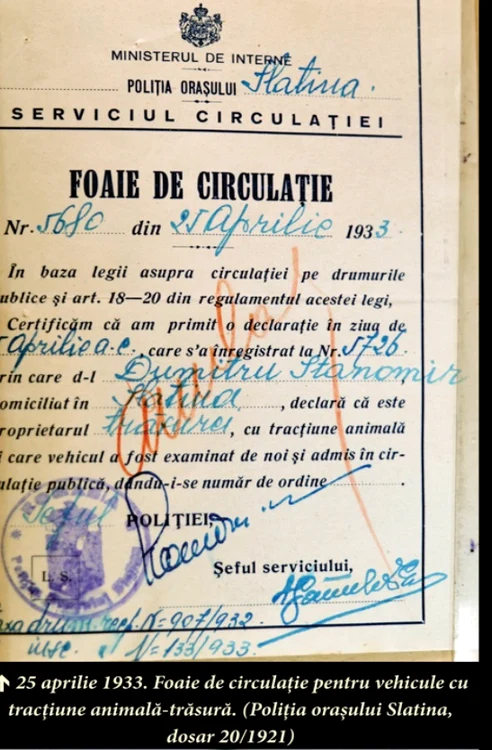 MINISTERUL DE INTERNE
POLIȚIA ORAȘULUI Slatina.
SERVICIUL CIRCULAȚIEI
FOAIE DE CIRCULAȚIE
Nr. 5680 din 25 Aprilie 1933.
În baza legii asupra circulației pe drumurile
ublice și art. 18—20 din regulamentul acestei legi,
Certificăm că am primit o declarație în ziua de
5 Aprilie a.c., care s'a înregistrat la Nr. 5726
rin care d-l Dumitru Stanomir
omiciliat în Slatina, declară că este
roprietarul trăsură, cu tracțiune animală
i care vehicul a fost examinat de noi și admis în cir-
ulație publică, dându-i-se număr de ordine
Șeful POLIȚIEI,
Șeful serviciului,
L. S.
axa drum. rec. N=907/932.
N=133/933.
25 aprilie 1933. Foaie de circulație pentru vehicule cu
tracțiune animală-trăsură. (Poliția orașului Slatina,
dosar 20/1921)